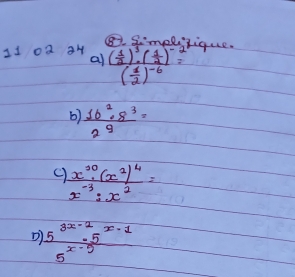 11 02 24
8ª Simplifique.
a) (1/2)³ · (1/2)⁻² =
(1/2)⁻⁶
b) 16² · 8³ =
2⁹
c) x³⁰ · (x²)⁴ =
x⁻³ : x²
D) 5³ˣ⁻² · 5ˣ⁻¹
5ˣ⁻⁵